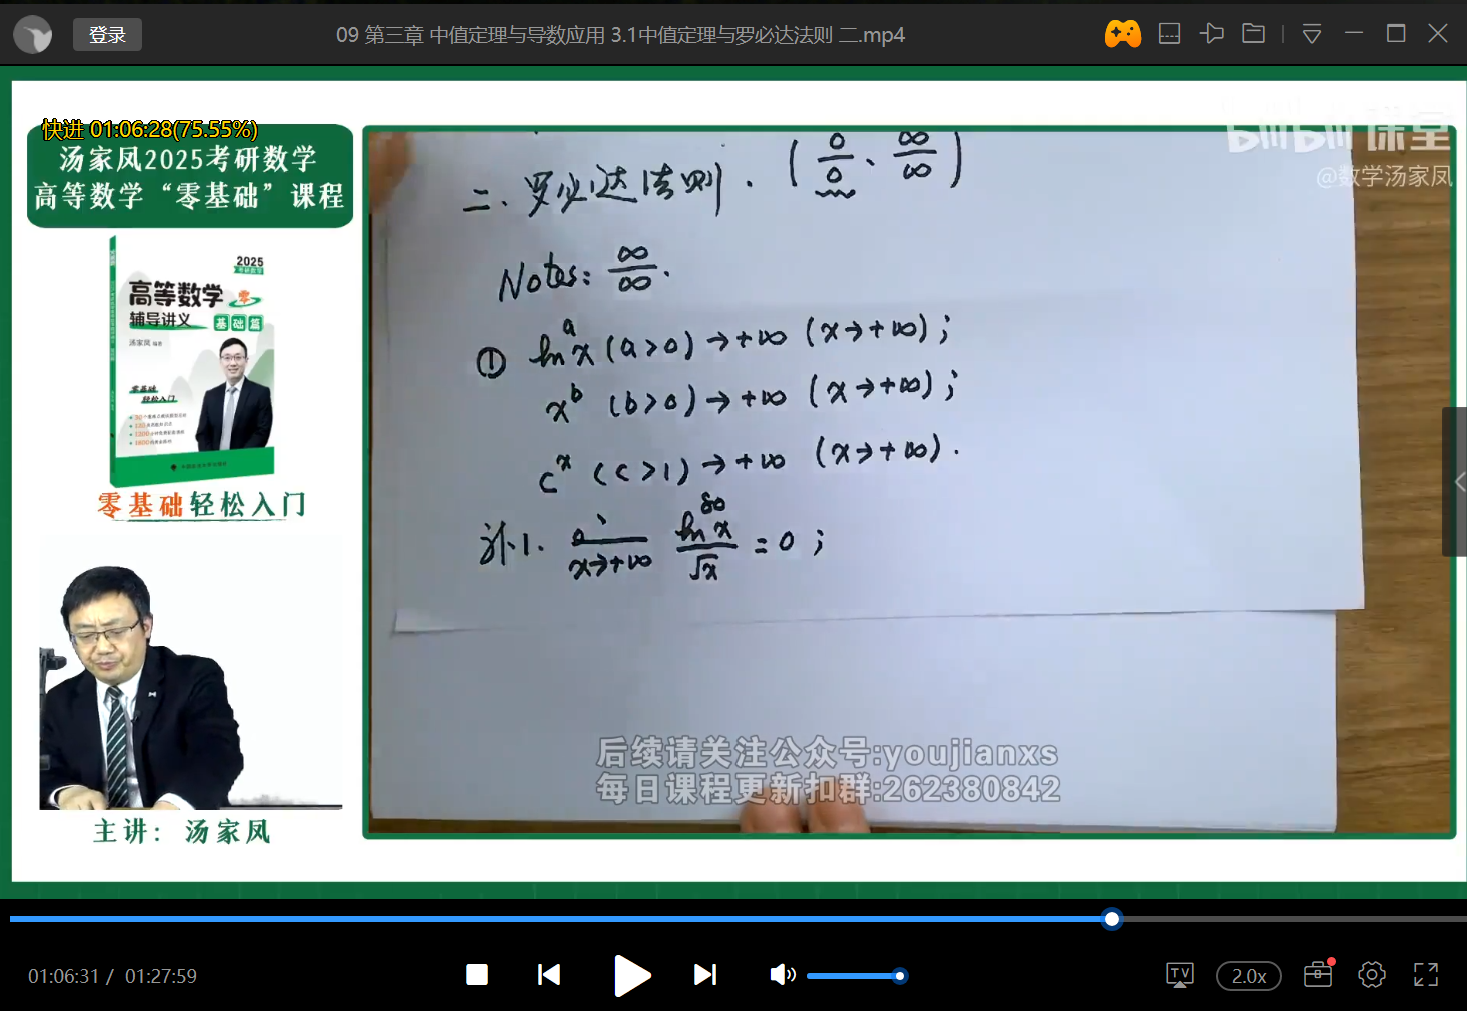 登录
09 第三章 中值定理与导数应用 3.1中值定理与罗必达法则 二.mp4
快进 01:06:28(75.55%)
汤家凤2025考研数学
高等数学“零基础”课程
2025
考研数学
高等数学 零
辅导讲义 基础篇
汤家凤 编著
零基础
轻松入门
零基础轻松入门
主讲：汤家凤
bilibili 课堂
@数学汤家凤
二、罗必达法则. (0/0、∞/∞)
Notes: ∞/∞.
① ln^a x (a>0) → +∞ (x→+∞);
x^b (b>0) → +∞ (x→+∞);
c^x (c>1) → +∞ (x→+∞).
x→+∞ ln^80 x/√x = 0;
后续请关注公众号:youjianxs
每日课程更新扣群:262380842
01:06:31 / 01:27:59
TV
2.0x